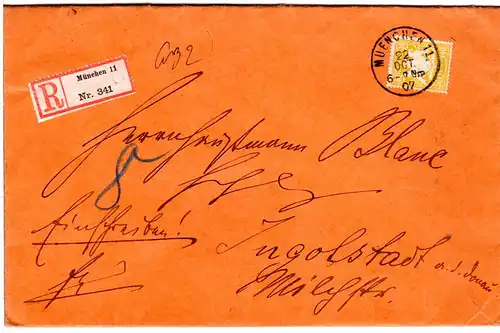 München 11
R
Nr. 341
MUENCHEN 11
22
OCT.
6-7 Nm
07
Herrn Hauptmann Blanc
Einschreiben!
Ingolstadt a. d. Donau
Milchstr.